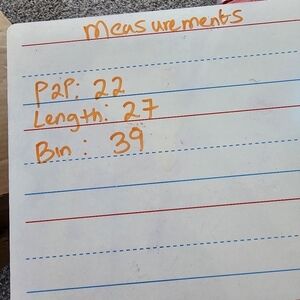 Measurements
P2P: 22
Length: 27
Bin: 39